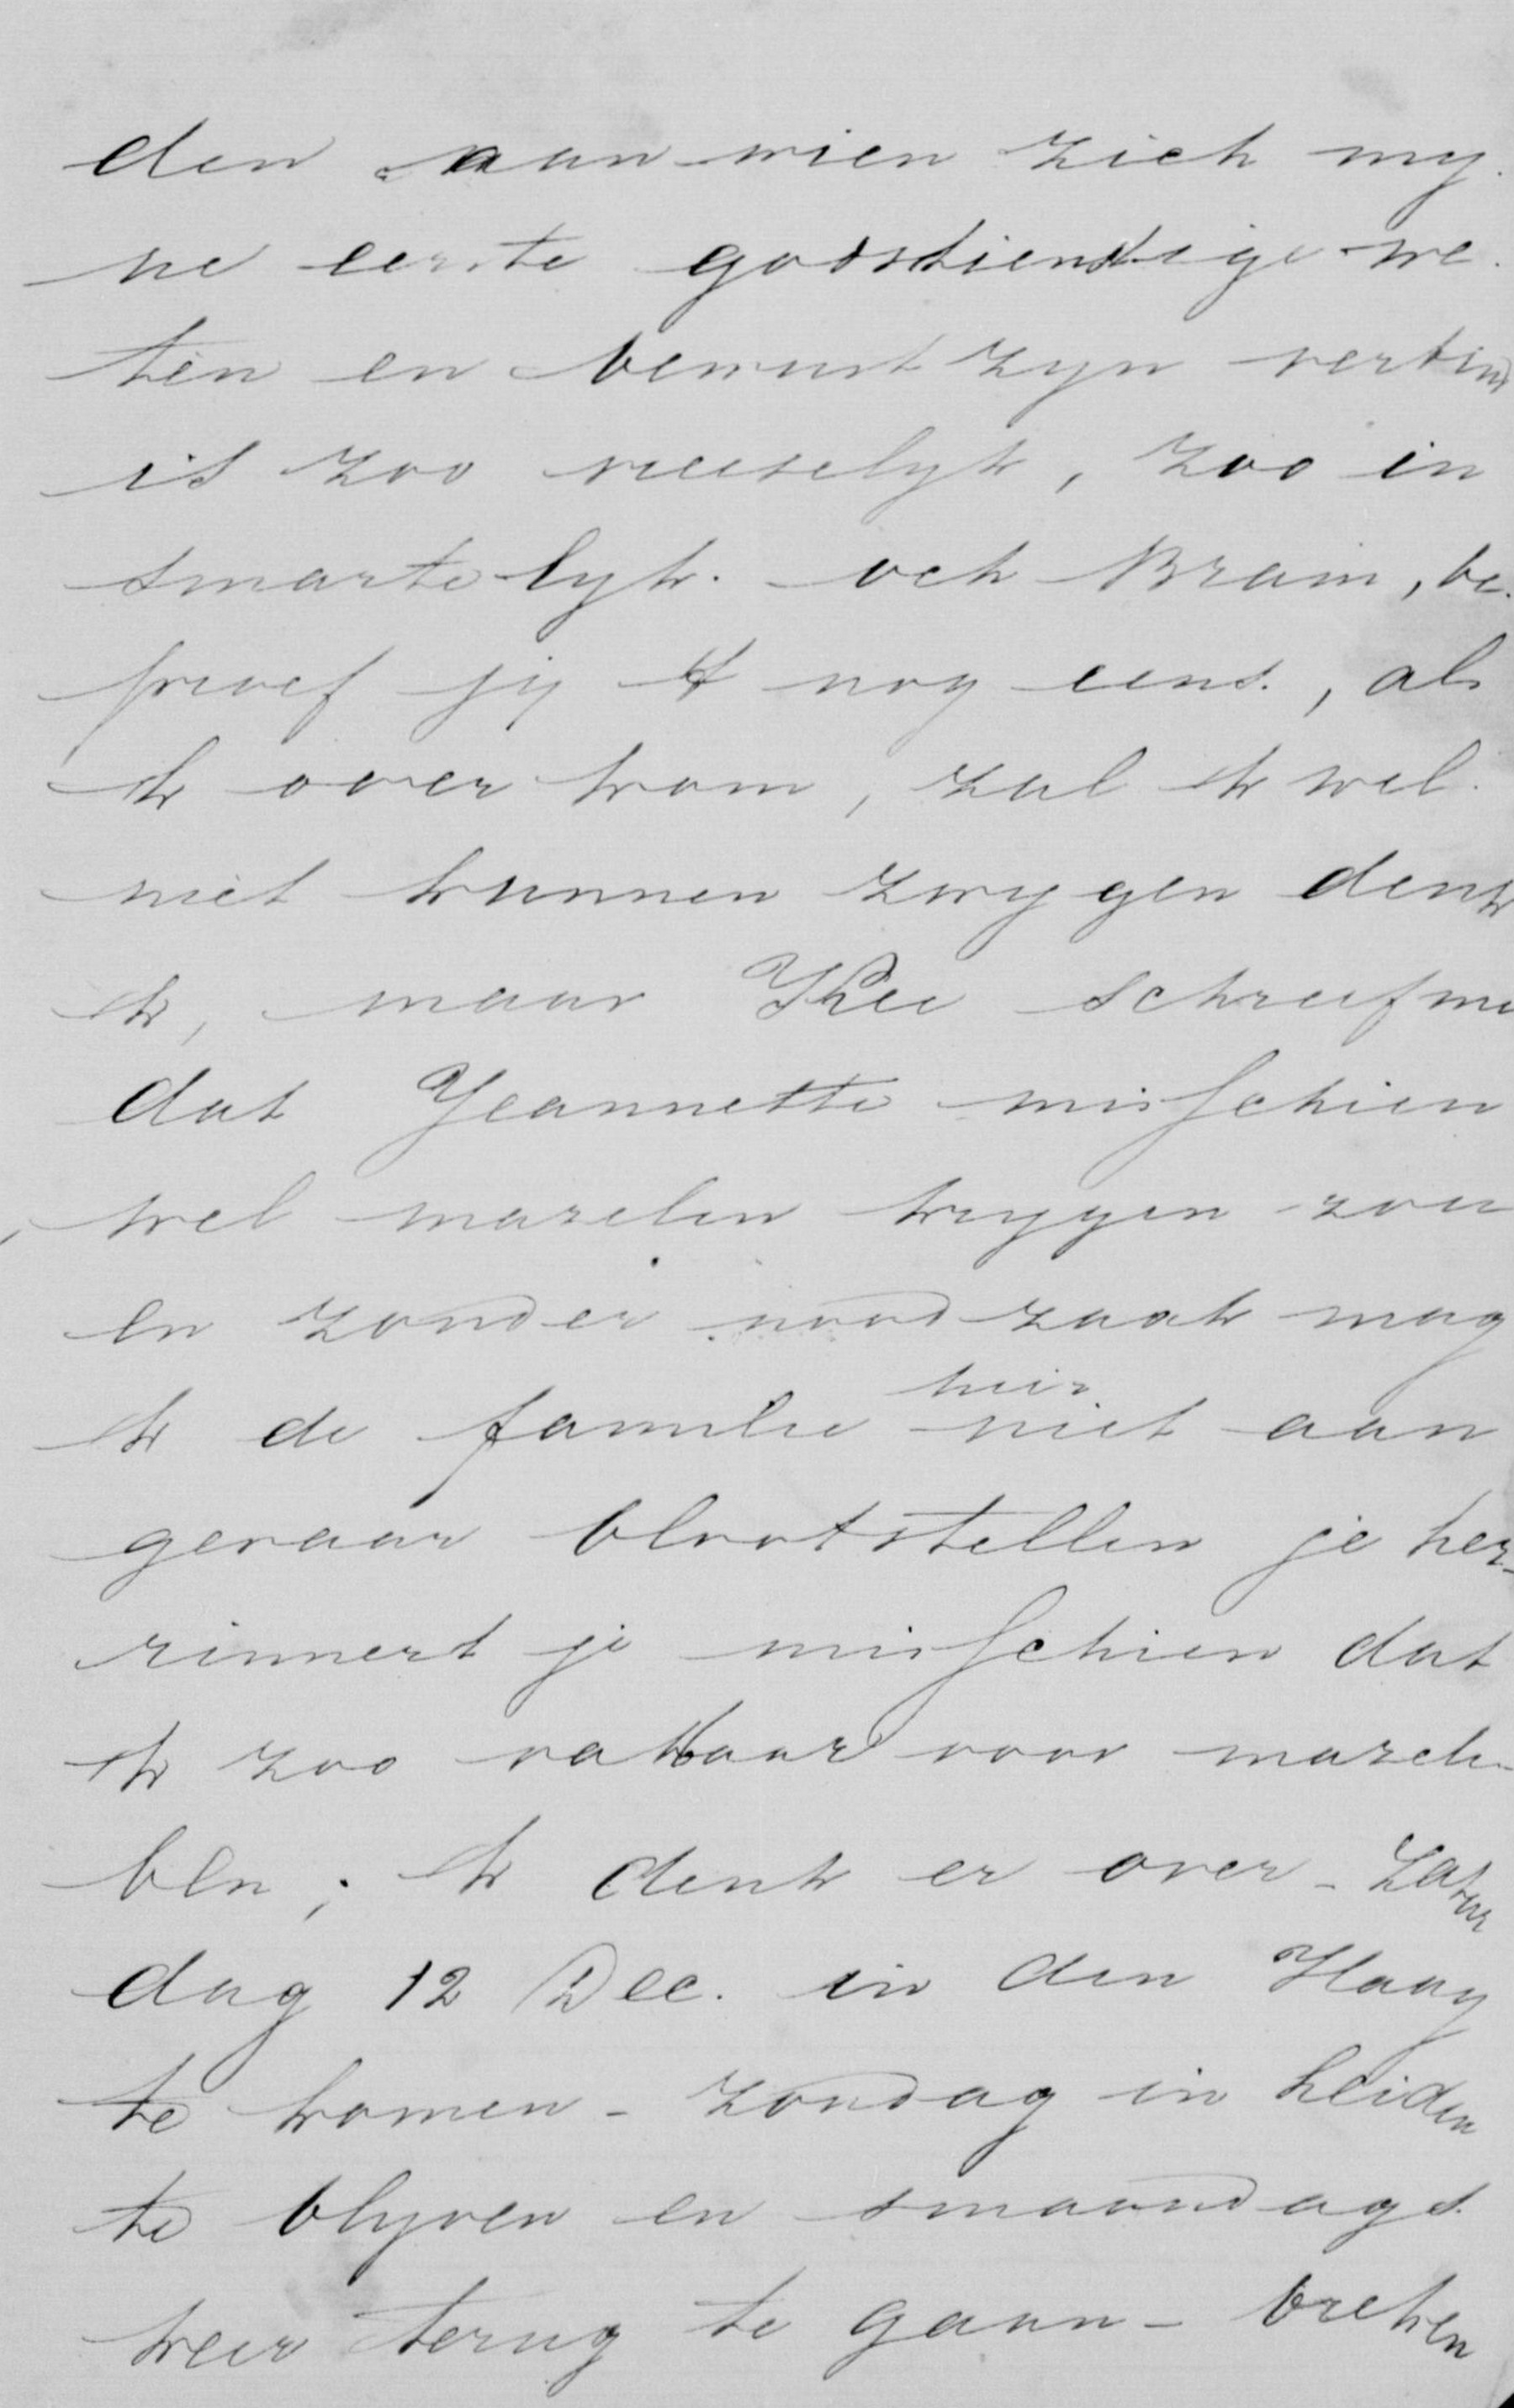 den aan wien zich my.
ne eerste godsdienstige we.
ten en bewust zyn verbind
is zoo vreeselyk, zoo in
smartelyk. och Bram, be.
proef jij 't nog eens, als
ik over kom, zal ik wel
niet kunnen zwygen denk
ik, maar Thee schreef me
dat Jeannette misschien
wel mazelen krygen zou
en zonder noodzaak mag
ik de familie hier niet aan
gevaar blootstellen je her-
rinnert je misschien dat
ik zoo vatbaar voor mazelen
ben; ik denk er over - Zatur
dag 12 Dec. in den Haag
te komen - zondag in Leiden
te blyven en smaandags
weer terug te gaan -